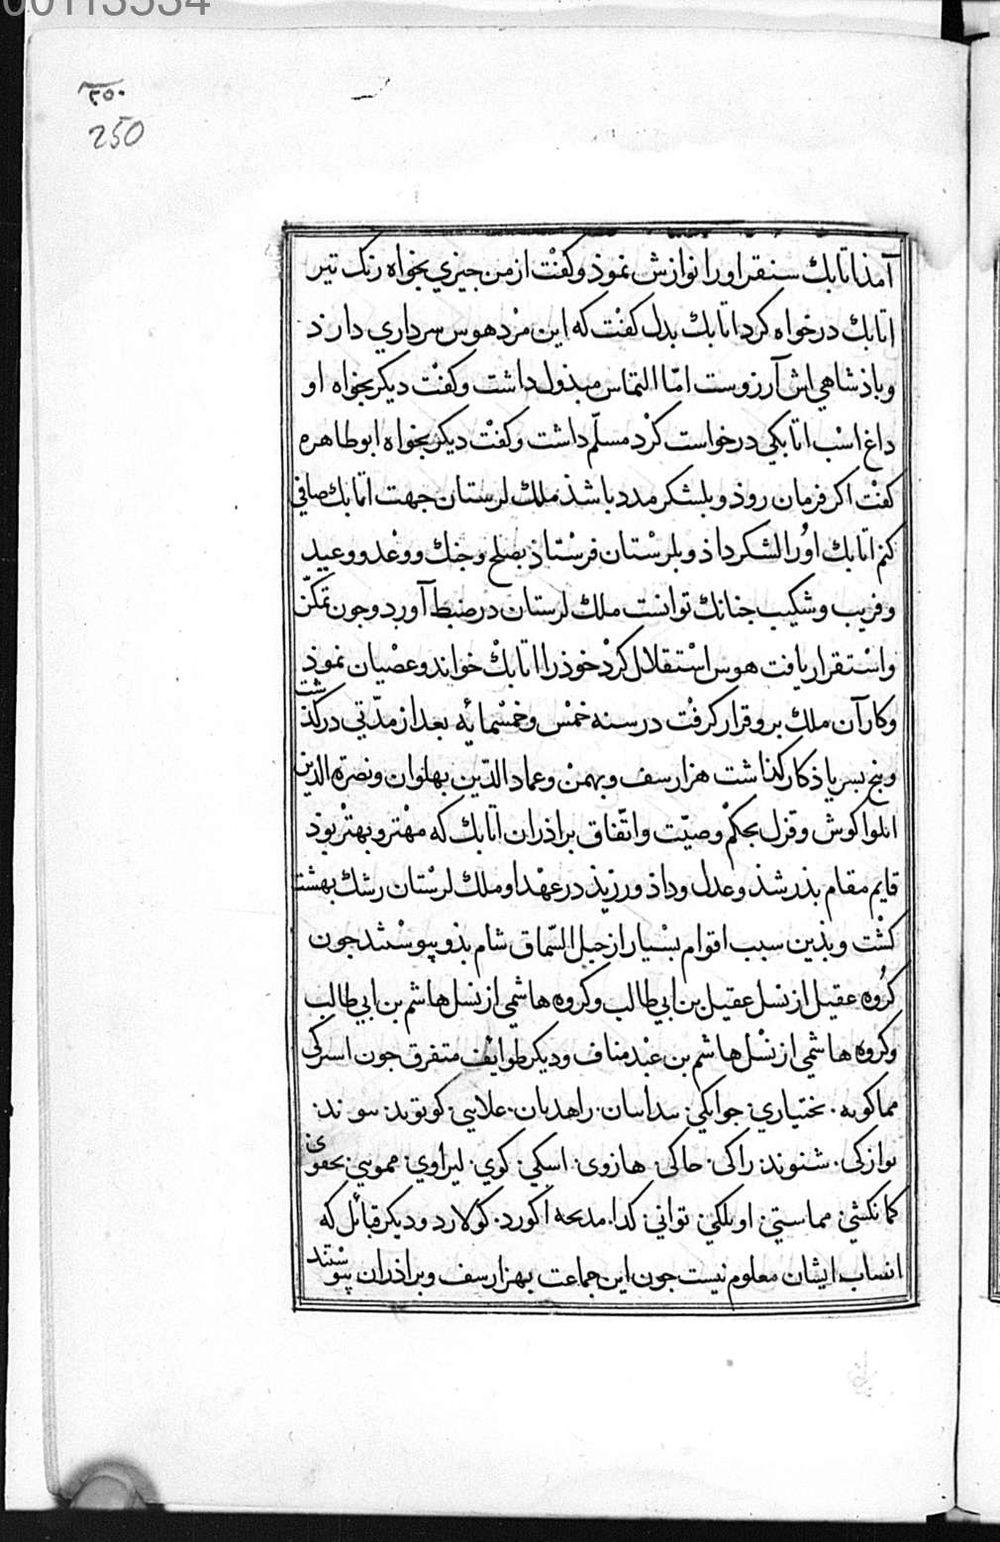 00113534
٢٥٠
250
آمذ اتابك سنقر او را نوازش نموذ و كفت از من جيزي بخواه رنك تير
اتابك درخواه كرد اتابك بدل كفت كه اين مرد هوس سرداري دارذ
و باذشاهي اش آرزوست امّا التماس مبذول داشت و كفت ديكر بخواه او
داغ اسب اتابكي درخواست كرد مسلّم داشت و كفت ديكر بخواه ابوطاهره
كفت اكر فرمان روذ و بلشكر مدد باشذ ملك لرستان جهت اتابك صافي
كنم اتابك او را لشكر داذ و بلرستان فرستاذ بصلح و جنك و وعد و وعيد
و فريب و شكيب جنانك توانست ملك لرستان در ضبط آورد و جون تمكّن
و استقرار يافت هوس استقلال كرد خوذ را اتابك خواند و عصيان نموذ
و كار آن ملك برو قرار كرفت در سنه خمس و خمسمائه بعد از مدّتي دركذشت
و پنج پسر ياذكار كذاشت هزارسف و بهمن و عماد الدّين بهلوان و نصرة الدّين
ايلواكوش و قزل بحكم وصيّت و اتّفاق براذران اتابك كه مهتر و بهتر بوذ
قايم مقام بذر شذ و عدل و داذ ورزيذ در عهد او ملك لرستان رشك بهشت
كشت و بذين سبب اقوام بسيار از جبل السّماق شام بذو پيوستند جون
كروه عقيل از نسل عقيل بن ابي طالب و كروه هاشمي از نسل هاشم بن ابي طالب
و كروه هاشمي از نسل هاشم بن عبد مناف و ديكر طوايف متفرق جون استركى
مماكويه بختياري جوانكي بيدانيان زاهديان علايي كوتوند
نوازكى شنوند راكى جاكى هاروى اسكي كوي ليراوي ممويي يحفوى
كمانكشي مماستي اوملكي تواني كدا مديحه اكورد كولارد و ديكر قبائل كه
انساب ايشان معلوم نيست جون اين جماعت بهزارسف و براذران پيوستند